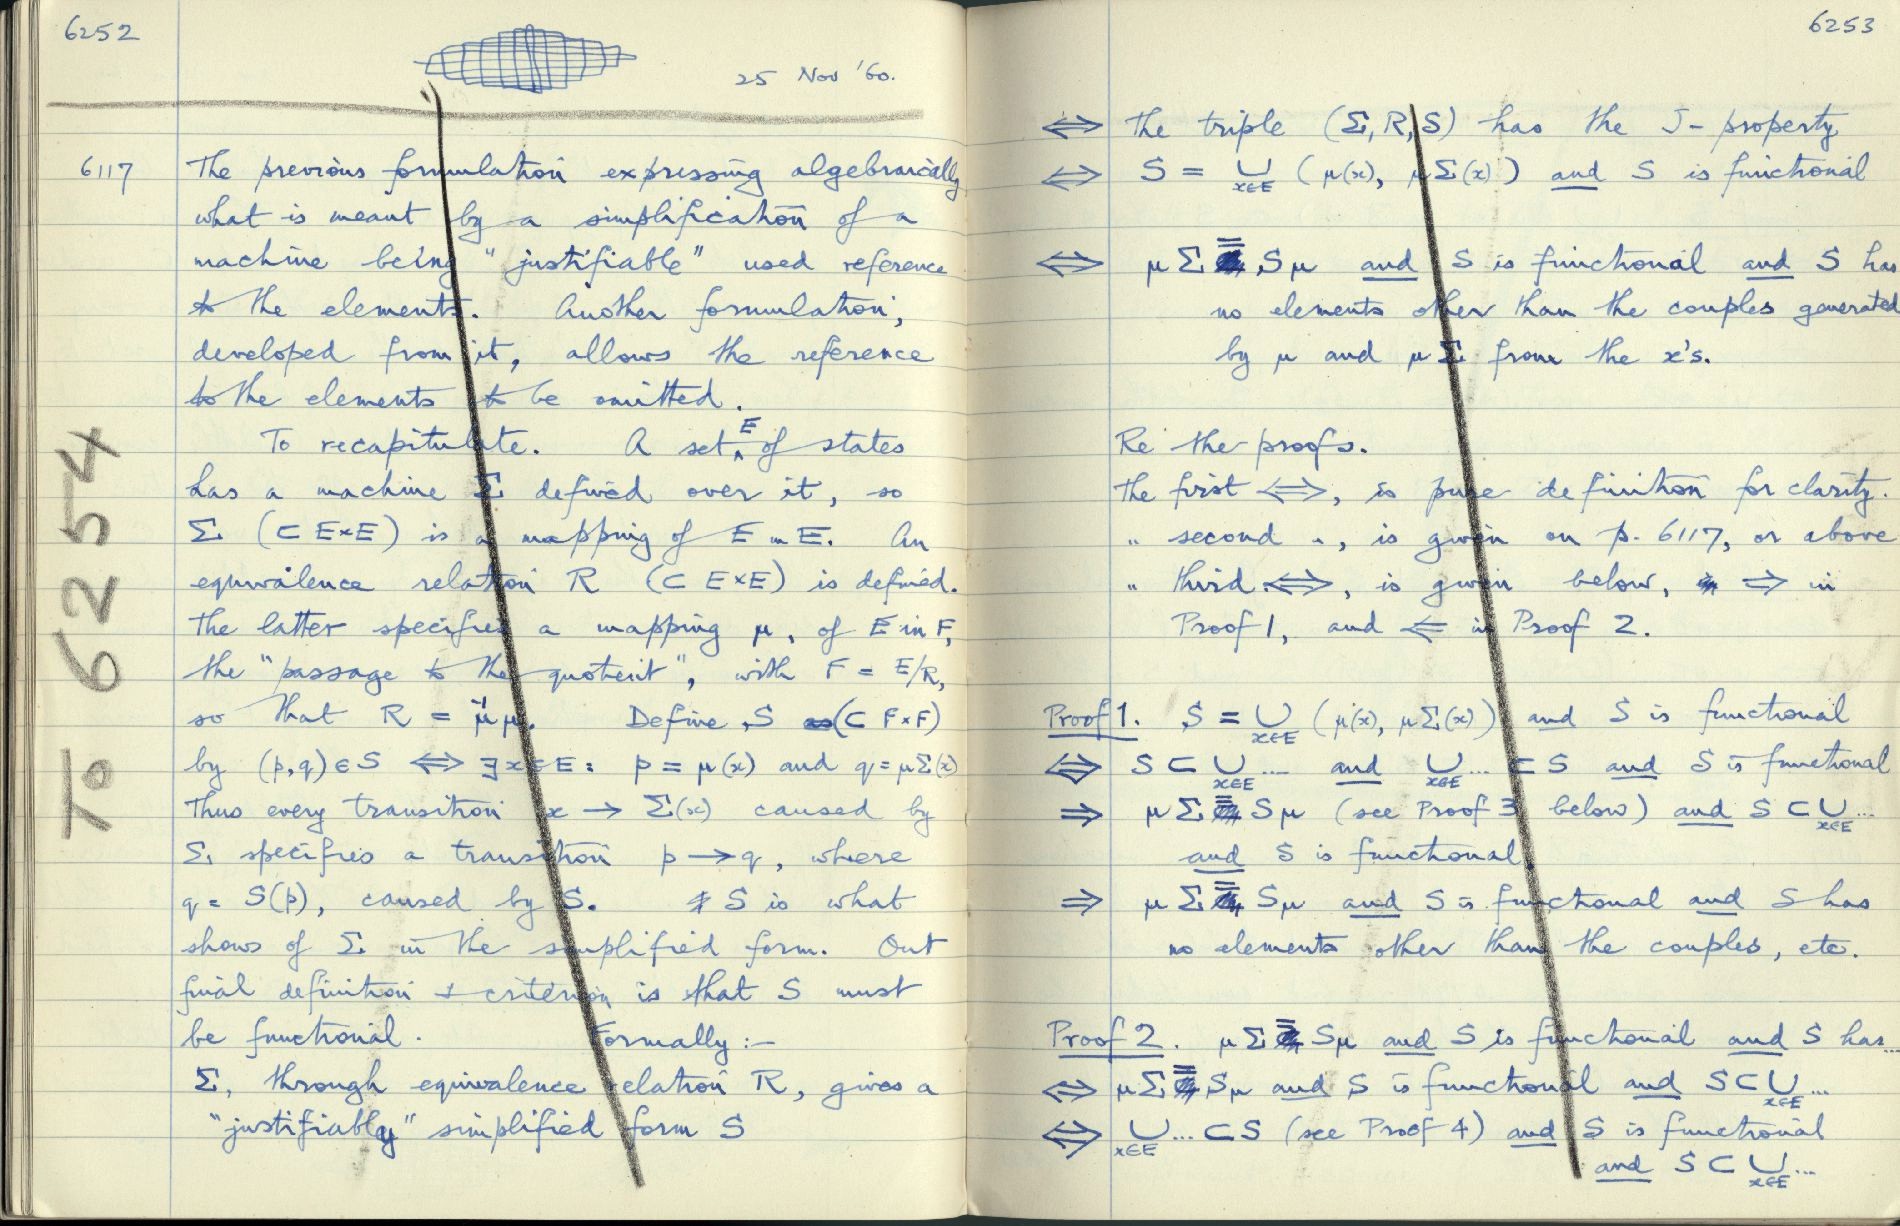 6252
25 Nov '60.
6117
The previous formulation expressing algebraically
what is meant by a simplification of a
machine being "justifiable" used reference
to the elements. Another formulation,
developed from it, allows the reference
to the elements to be omitted.
To recapitulate. A set E of states
has a machine Σ defined over it, so
Σ (⊂ E×E) is a mapping of E in E. An
equivalence relation R (⊂ E×E) is defined.
The latter specifies a mapping μ, of E in F,
the "passage to the quotient", with F = E/R,
so that R = μ⁻¹μ. Define S (⊂ F×F)
by (p,q) ∈ S ⟺ ∃x∈E: p = μ(x) and q = μΣ(x)
Thus every transition x → Σ(x) caused by
Σ specifies a transition p → q, where
q = S(p), caused by S. S is what
shows of Σ in the simplified form. Our
final definition & criterion is that S must
be functional. Formally :-
Σ, through equivalence relation R, gives a
"justifiably" simplified form S
TO 6254
6253
⟺ The triple (Σ, R, S) has the J-property
⟺ S = ∪ x∈E (μ(x), μΣ(x)) and S is functional
⟺ μΣ = Sμ and S is functional and S has
no elements other than the couples generated
by μ and μΣ from the x's.
Re the proofs.
The first ⟺, is pure definition for clarity.
" second ", is given on p. 6117, or above
" third ⟺, is given below, ⇒ in
Proof 1, and ⇐ in Proof 2.
Proof 1. S = ∪ x∈E (μ(x), μΣ(x)) and S is functional
⟺ S ⊂ ∪ x∈E .... and ∪ x∈E ... ⊂ S and S is functional
⇒ μΣ = Sμ (see Proof 3 below) and S ⊂ ∪ x∈E ...
and S is functional,
⇒ μΣ = Sμ and S is functional and S has
no elements other than the couples, etc.
Proof 2. μΣ = Sμ and S is functional and S has...
⟺ μΣ = Sμ and S is functional and S ⊂ ∪ x∈E ...
⟺ ∪ x∈E ... ⊂ S (see Proof 4) and S is functional
and S ⊂ ∪ x∈E ...